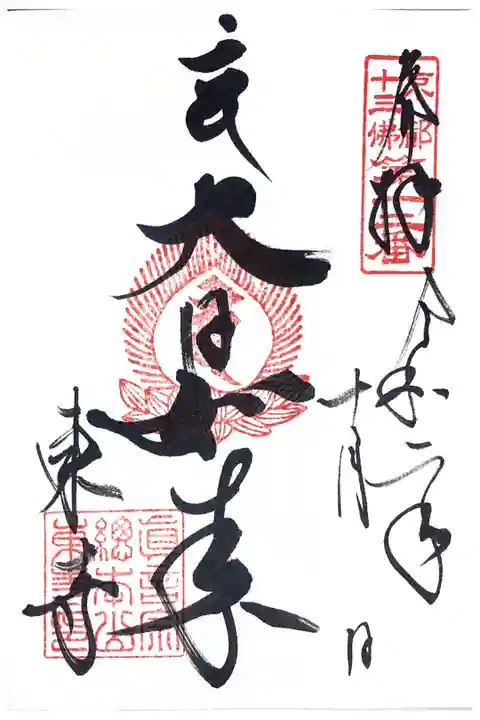 京都
十三佛
第十二番
奉拝
令和二年
十月 日
大日如来
真言宗
總本山
東寺